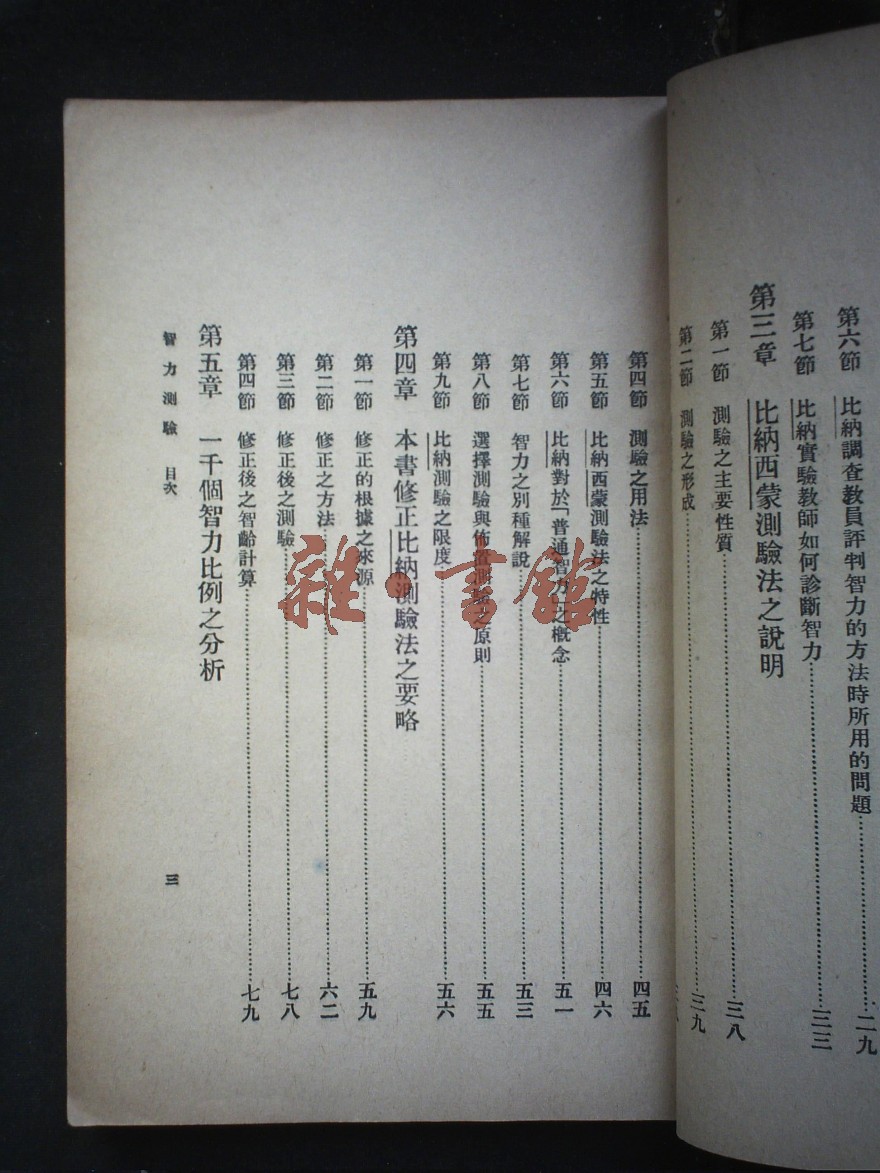 第六節 比納調查教員評判智力的方法時所用的問題……二九
第七節 比納實驗教師如何診斷智力……三三
第三章 比納西蒙測驗法之說明
第一節 測驗之主要性質……三八
第二節 測驗之形成……三九
第四節 測驗之用法……四五
第五節 比納西蒙測驗法之特性……四六
第六節 比納對於「普通智力」之概念……五一
第七節 智力之別種解說……五三
第八節 選擇測驗與佈置測驗之原則……五五
第九節 比納測驗之限度……五六
第四章 本書修正比納測驗法之要略
第一節 修正的根據之來源……五九
第二節 修正之方法……六二
第三節 修正後之測驗……七八
第四節 修正後之智齡計算……七九
第五章 一千個智力比例之分析
智力測驗 目次
三
雜·書館